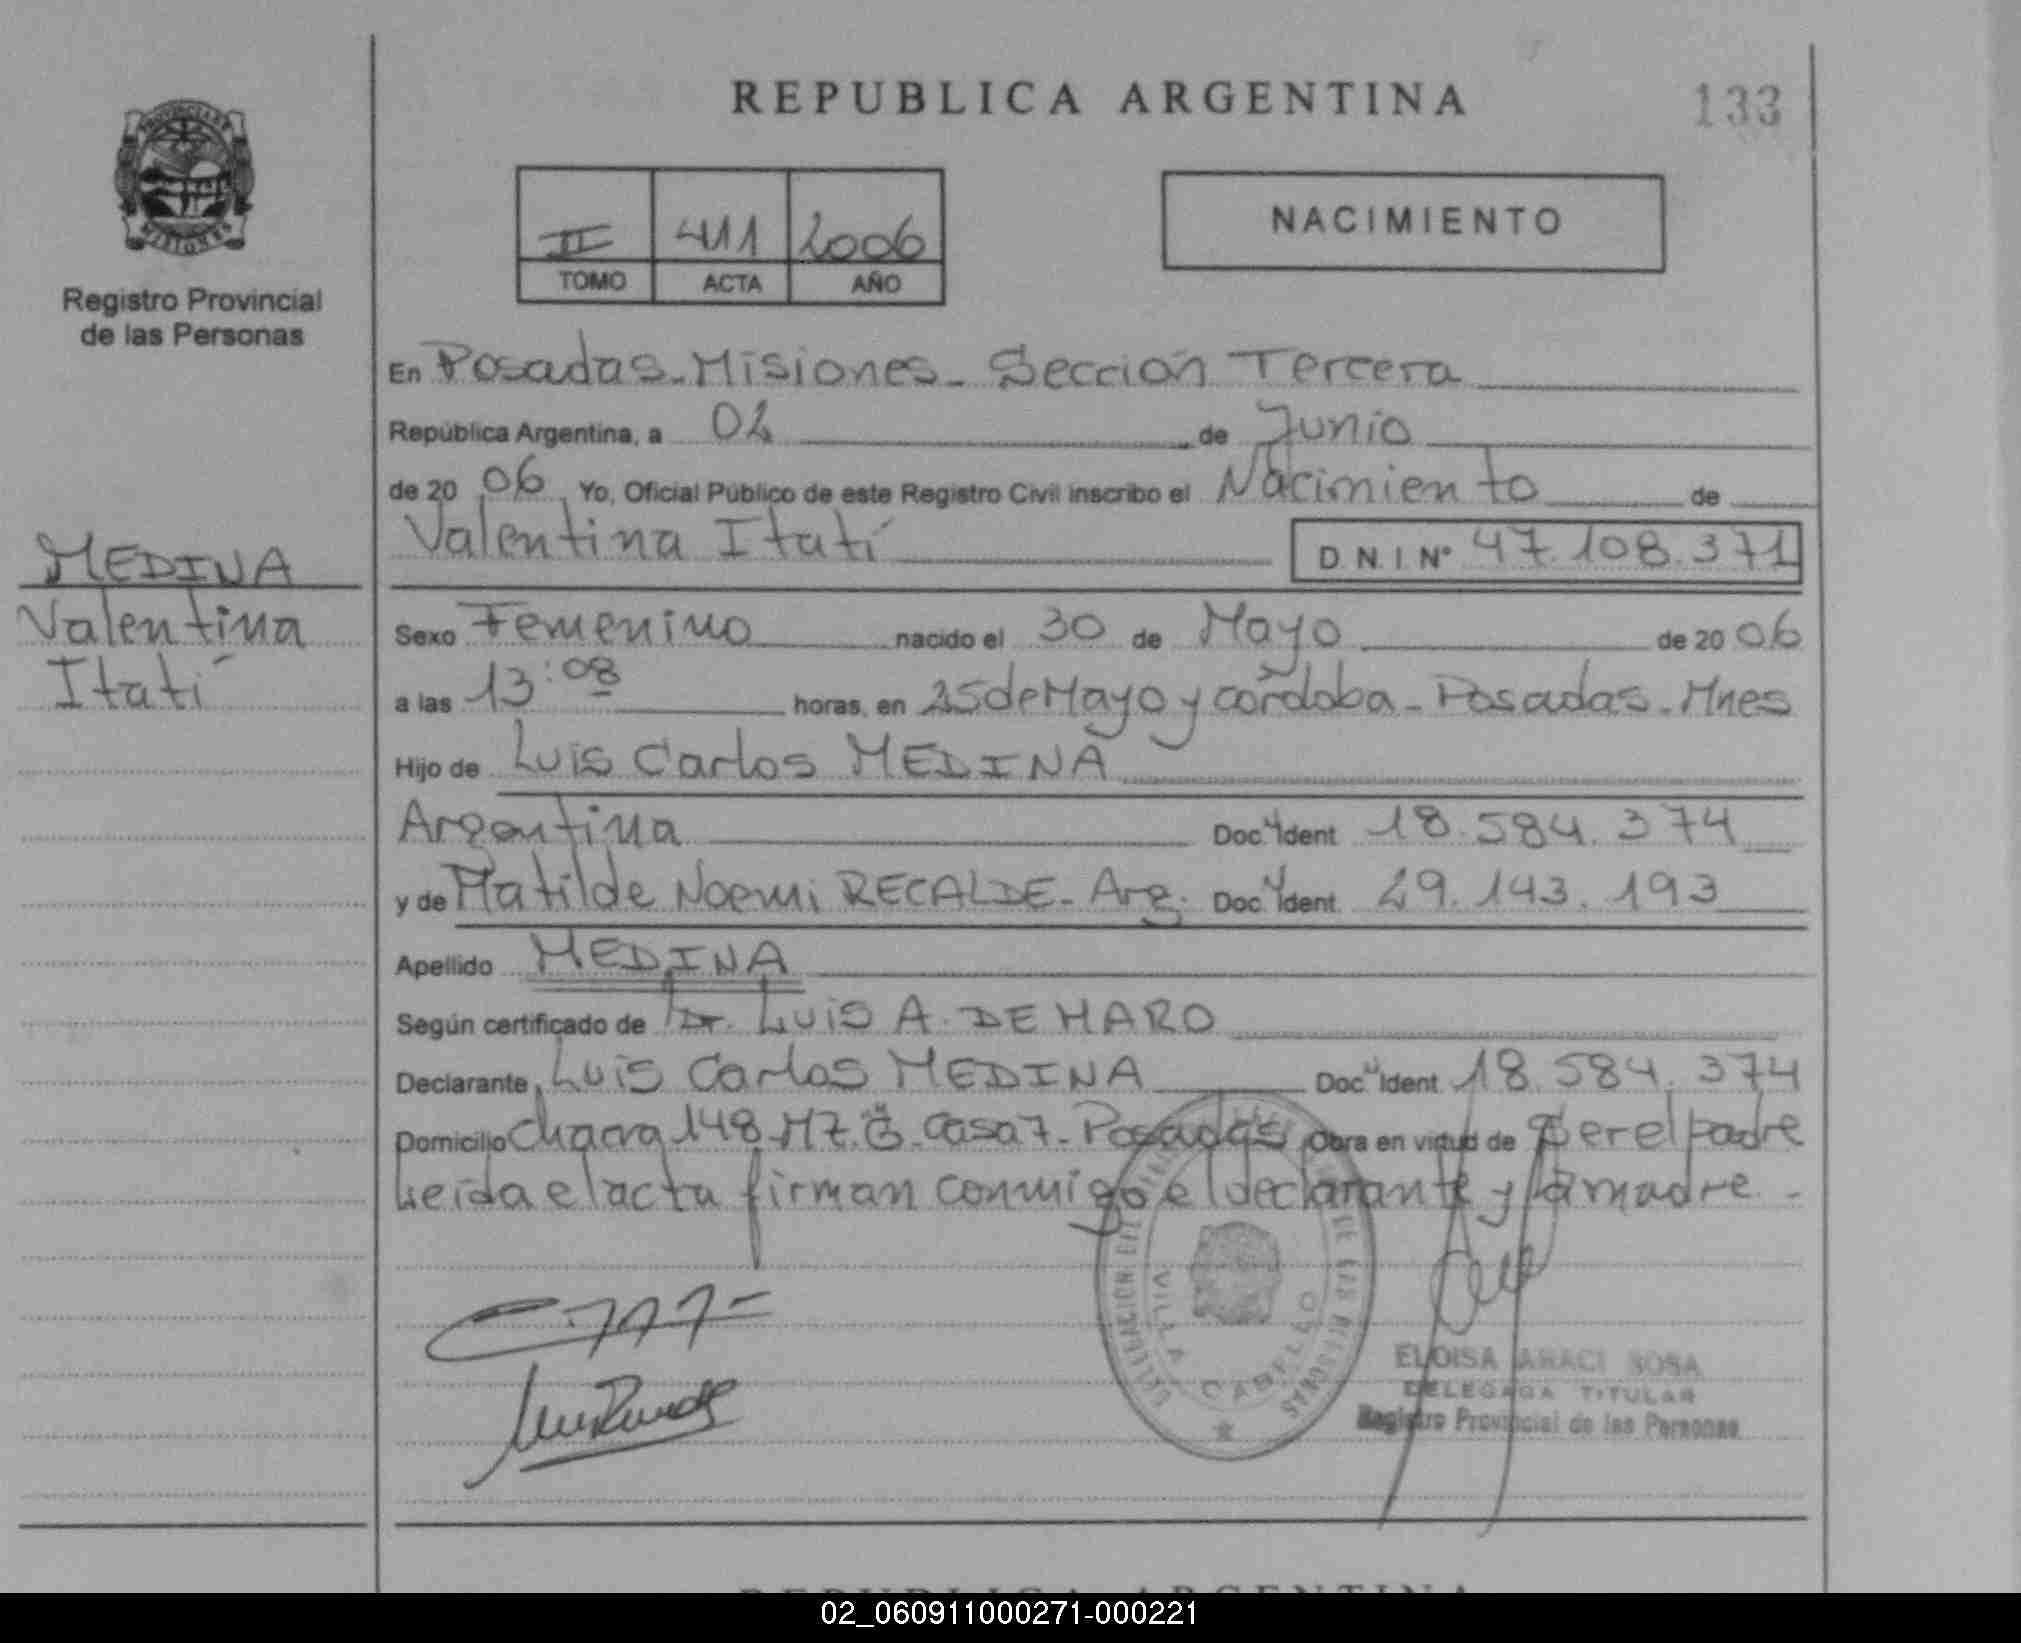 REPUBLICA ARGENTINA
133
PROVINCIA DE
MISIONES
Registro Provincial
de las Personas
II 411 2006
TOMO ACTA AÑO
NACIMIENTO
En Posadas-Misiones- Sección Tercera
República Argentina, a 02 de Junio
de 20 06 Yo, Oficial Público de este Registro Civil inscribo el Nacimiento de
Valentina Itatí D.N.I. N° 47.108.371
MEDINA
Valentina
Itatí
Sexo Femenino nacido el 30 de Mayo de 20 06
a las 13:08 horas, en 25 de Mayo y córdoba - Posadas - Mnes
Hijo de Luis Carlos MEDINA
Argentina Doc. Ident. 18.584.374
y de Matilde Noemi RECALDE - Arg. Doc. Ident. 29.143.193
Apellido MEDINA
Según certificado de Dr. Luis A. DE HARO
Declarante Luis Carlos MEDINA Doc. Ident. 18.584.374
Domicilio Chacra 148 - MZ. Casa 7 - Posadas Obra en virtud de Ser el padre
Leida el acta firman conmigo el declarante y la madre -
DELEGACION DE LAS PERSONAS
VILLA CABELLO
ELOISA ARACI SOSA
DELEGADA TITULAR
Registro Provincial de las Personas
REPUBLICA ARGENTINA
02_060911000271-000221